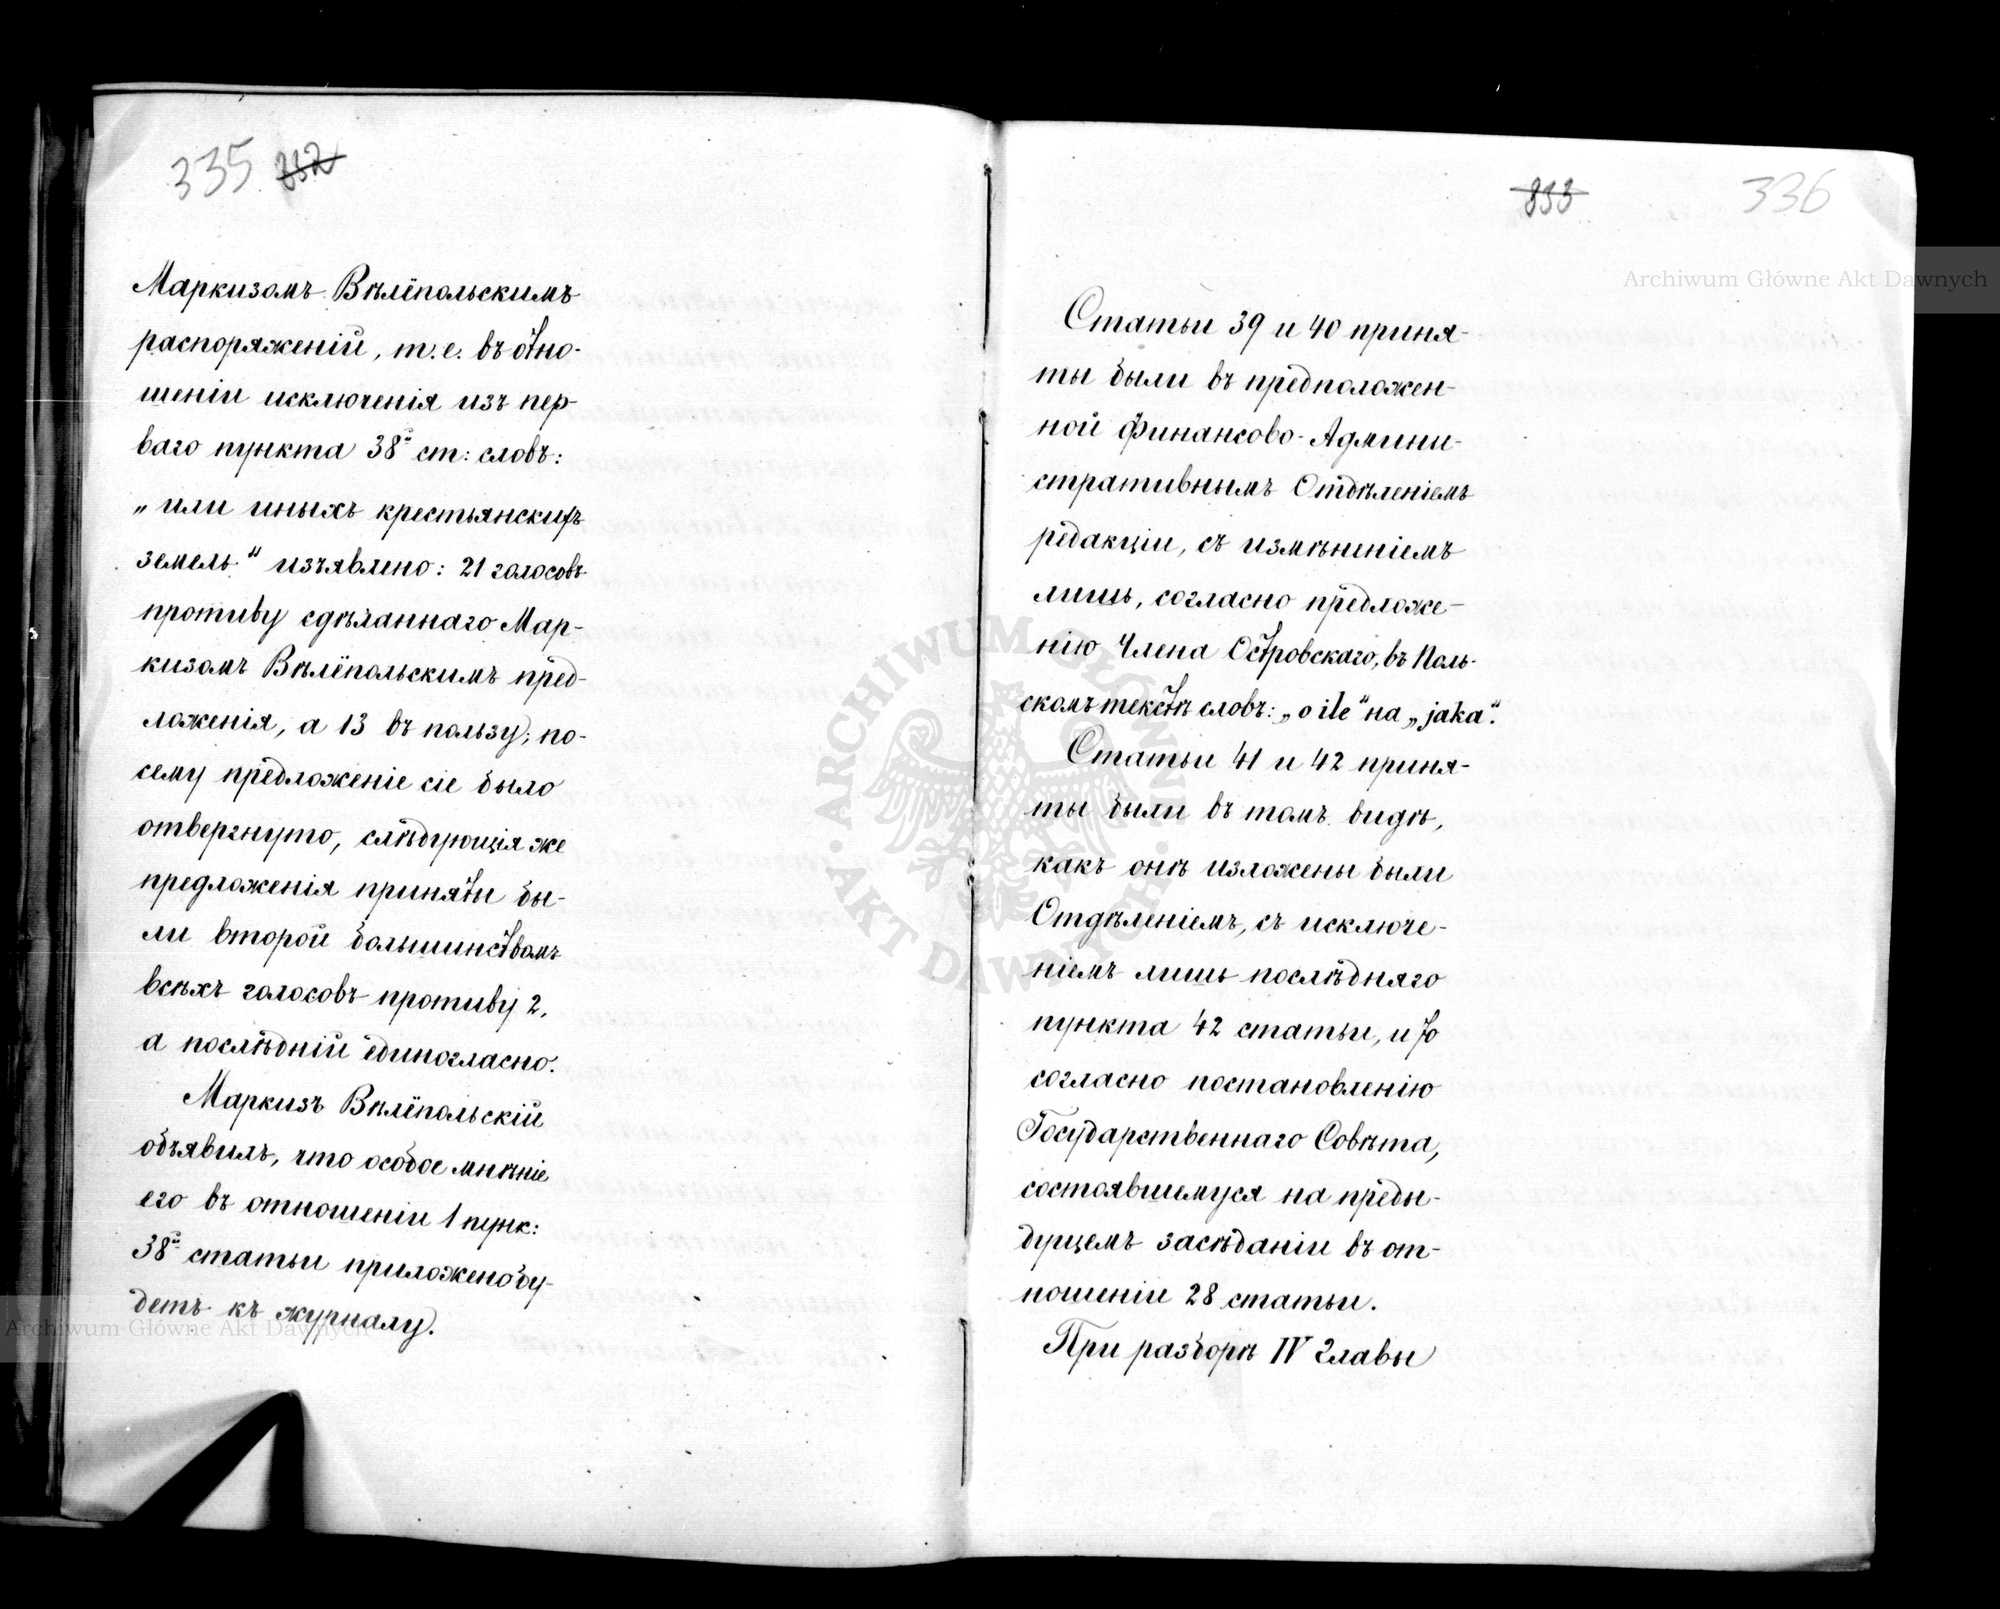 335 832
Маркизомъ Вѣлёпольскимъ
распоряженій, т. е. въ отно-
шеніи исключенія изъ пер-
ваго пункта 38й ст: словъ:
„или иныхъ крестьянскихъ
земель" изъявлено: 21 голосовъ
противу сдѣланнаго Мар-
кизомъ Вѣлёпольскимъ пред-
ложенія, а 13 въ пользу; по-
сему предложеніе сіе было
отвергнуто, слѣдующія же
предложенія приняты бы-
ли второй большинствомъ
всѣхъ голосовъ противу 2,
а послѣдній единогласно.
Маркизъ Вѣлёпольскій
объявилъ, что особое мнѣніе
его въ отношеніи 1 пунк:
38й статьи приложено бу-
детъ къ журналу.
833 336
Статьи 39 и 40 приня-
ты были въ предположен-
ной Финансово-Админи-
стративнымъ Отдѣленіемъ
редакціи, съ измѣненіемъ
лишь, согласно предложе-
нію Члена Островскаго, въ Поль-
скомъ текстѣ словъ: „o ile" на „jaka".
Статьи 41 и 42 приня-
ты были въ томъ видѣ,
какъ онѣ изложены были
Отдѣленіемъ, съ исключе-
ніемъ лишь послѣдняго
пункта 42 статьи, и то
согласно постановленію
Государственнаго Совѣта,
состоявшемуся на преды-
дущемъ засѣданіи въ от-
ношеніи 28 статьи.
При разборѣ IV Главы
Archiwum Główne Akt Dawnych
Archiwum Główne Akt Dawnych
· ARCHIWUM GŁÓWNE · AKT DAWNYCH